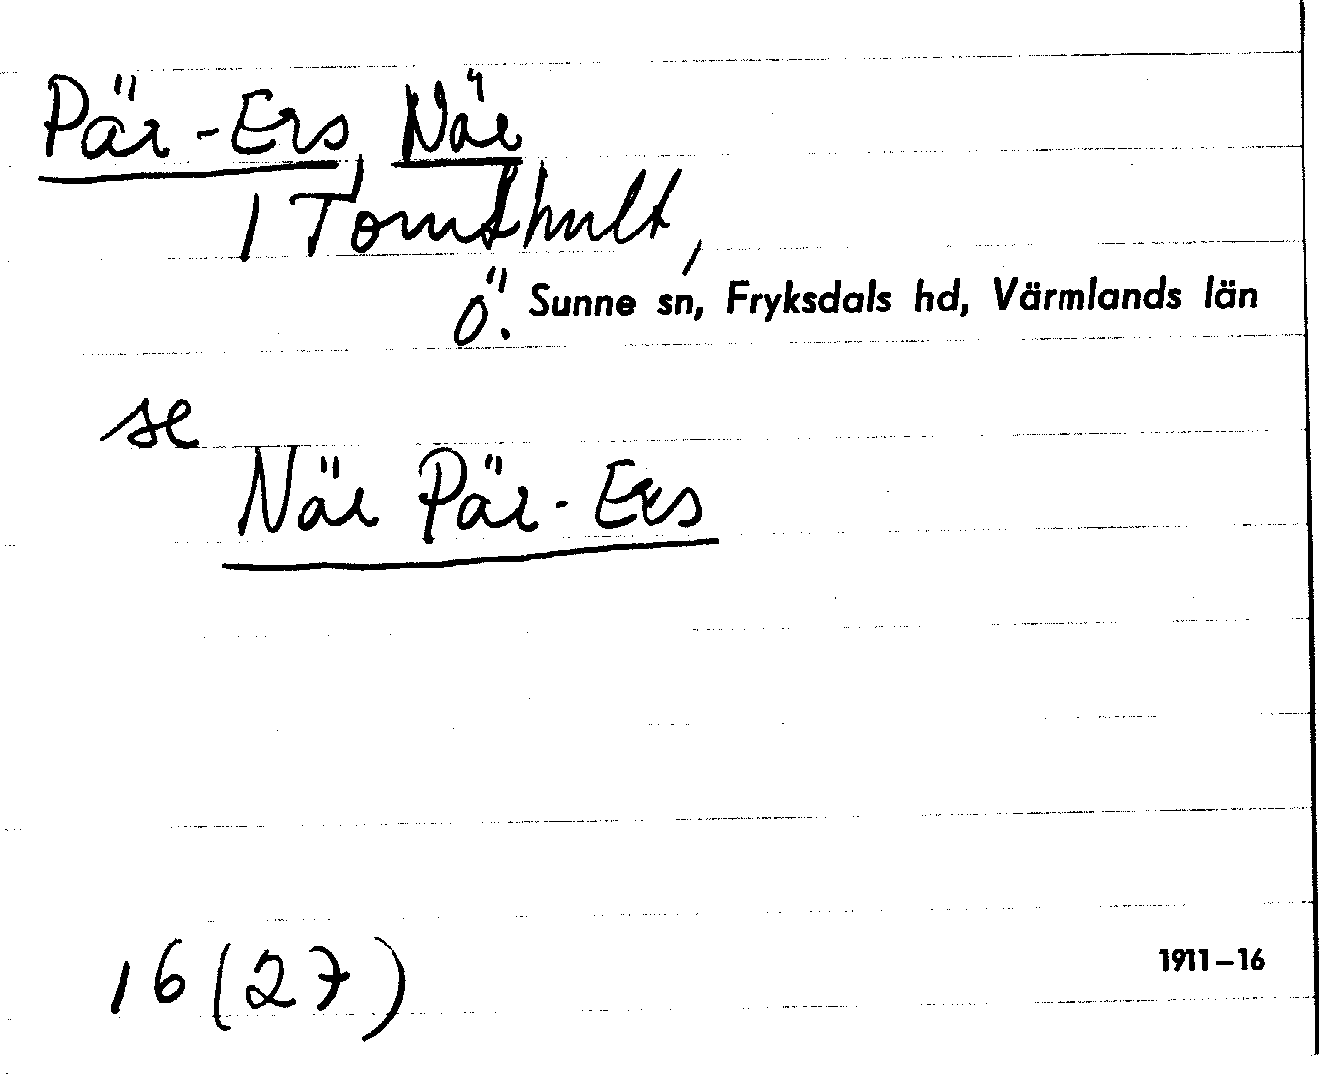 Pär-Ers, När
i Tomthult,
Ö. Sunne sn, Fryksdals hd, Värmlands län
se
När Pär-Ers
16 (27)
1911–16